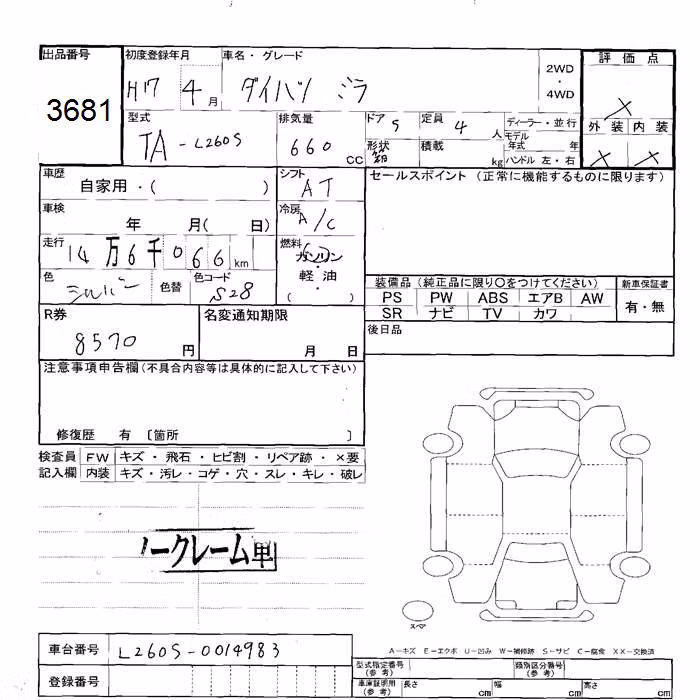 出品番号
3681
初度登録年月 車名・グレード
H17 4月 ダイハツ ミラ
2WD
・
4WD
評価点
×
外装 内装
× ×
型式 排気量 ドア 定員 ディーラー・並行
TA-L260S 660cc 5 4人 モデル
年式 年
形状 積載 kg ハンドル 左・右
箱
車歴
自家用・( )
シフト
AT
車検
年 月( 日)
冷房
A/C
走行
14万6千066km
燃料
ガソリン
・
軽油
・
( )
色 色替 色コード
シルバー S28
セールスポイント (正常に機能するものに限ります)
装備品 (純正品に限り○をつけてください)
PS PW ABS エアB AW
SR ナビ TV カワ
新車保証書
有・無
後日品
R券
8570円
名変通知期限
月 日
注意事項申告欄(不具合内容等は具体的に記入して下さい)
修復歴 有 〔箇所 〕
検査員 FW キズ・飛石・ヒビ割・リペア跡・×要
記入欄 内装 キズ・汚レ・コゲ・穴・スレ・キレ・破レ
ノークレーム車
スペア
A-キズ E-エクボ U-凹み W-補修跡 S-サビ C-腐食 XX-交換済
車台番号 L260S-0014983
登録番号
型式指定番号
(参考)
類別区分番号
(参考)
車庫証明用
(参考)
長さ cm 幅 cm 高さ cm